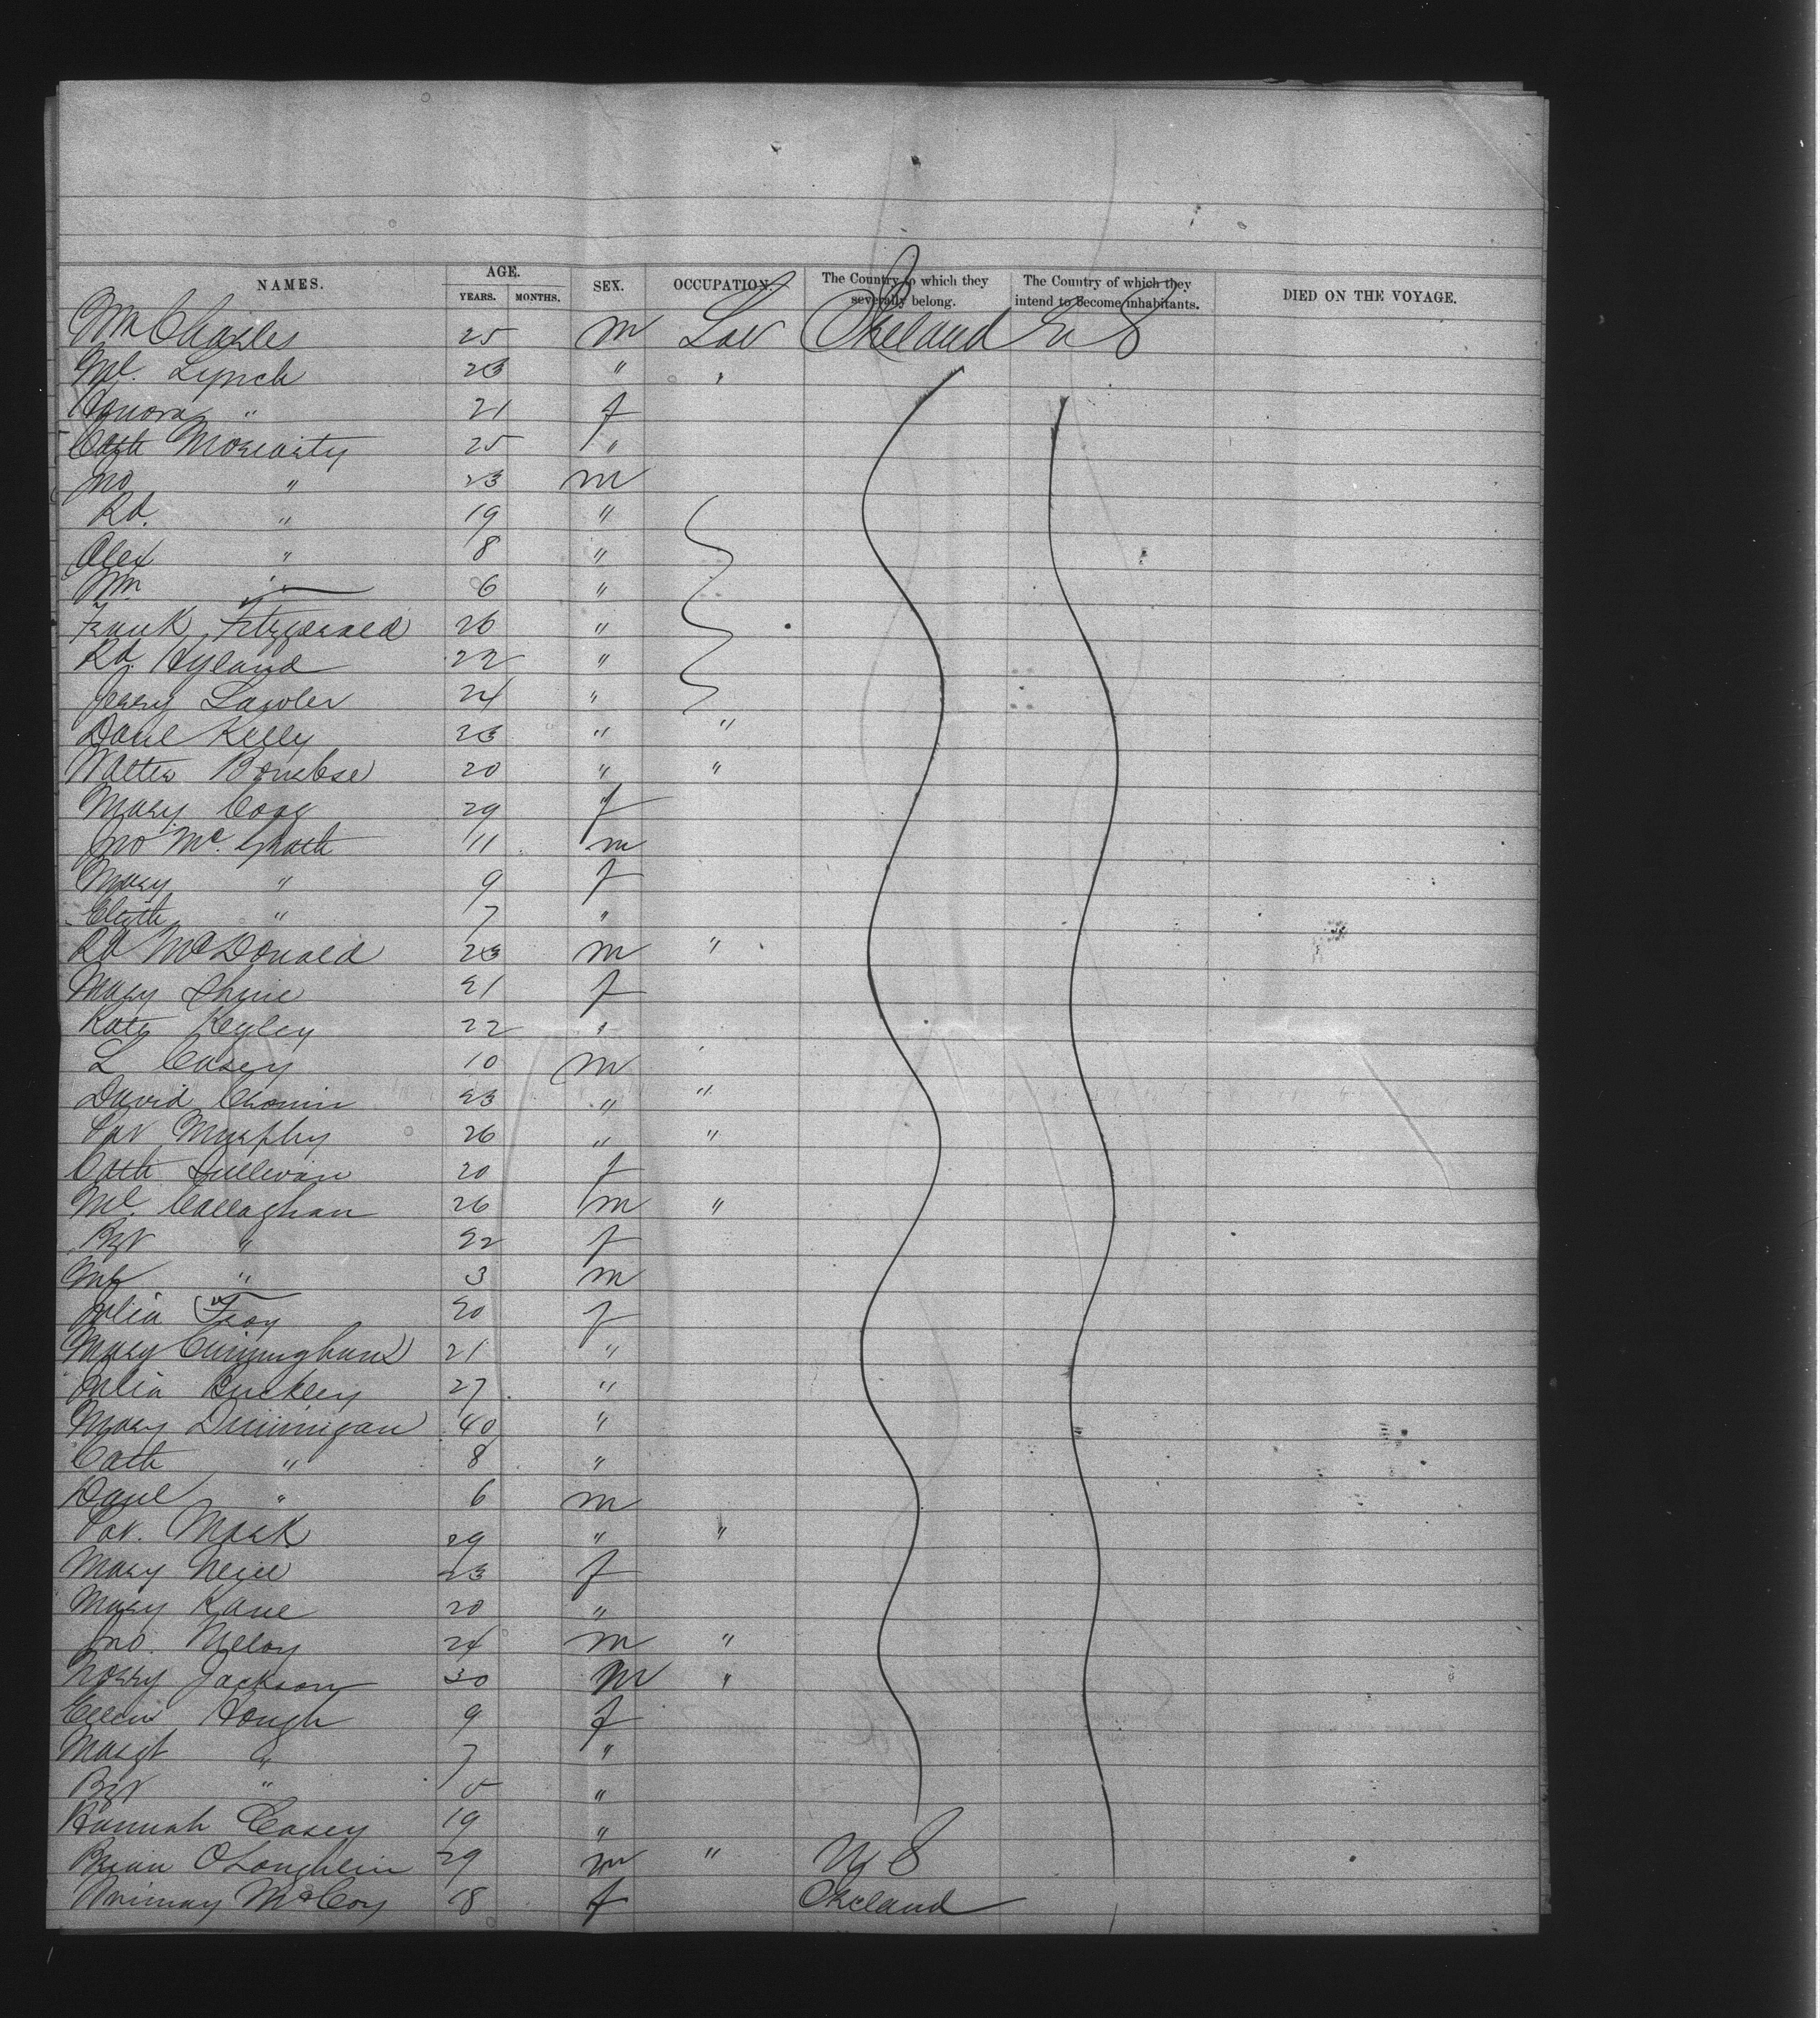 NAMES. AGE. YEARS. MONTHS. SEX. OCCUPATION. The Country to which they severally belong. The Country of which they intend to become inhabitants. DIED ON THE VOYAGE.
Wm Charles 25 m Lab Ireland U S
Ml. Lynch 23 " "
Honora " 21 f
Cath Moriarty 25 "
Jno " 23 m
Rd. " 19 "
Alex " 8 "
Wm " 6 "
Frank Fitzgerald 26 "
Rd. Hyland 22 "
Jerry Lawler 24 "
Danl Kelly 23 " "
Walter 20 " "
Mary 29 f
Jno McGrath 11 m
Mary " 9 f
" 7 "
Rd McDonald 23 m "
Mary Shine 21 f
Kate 22 "
L Casey 10 m
David Cronin 23 " "
Pat Murphy 26 " "
Cath Sullivan 20 f
Ml. Callaghan 26 m "
Bgt " 22 f
" 3 m
Julia Troy 20 f
Mary Cunningham 21 "
Julia Buckley 27 "
Mary Dunnigan 40 "
Cath " 8 "
Danl " 6 m
Pat. Mack 29 " "
Mary Neill 23 f
Mary Kane 20 "
Jno. 24 m "
Jackson 30 m "
Ellen Hough 9 f
Margt " 7 "
Bgt " 5 "
Hannah Casey 19 "
Brian OLoughlin 29 m " U S
McCoy 18 f Ireland